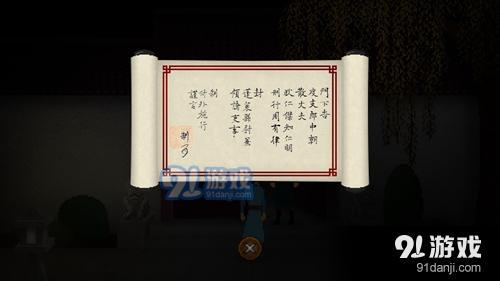 門下告
度支郎中朝
散大夫
狄仁傑知仁明
刑行周有律
封
蓬萊縣尉
領請支
制
付外施行
謹言
制可
91游戏
91danji.com
91游戏
91danji.com